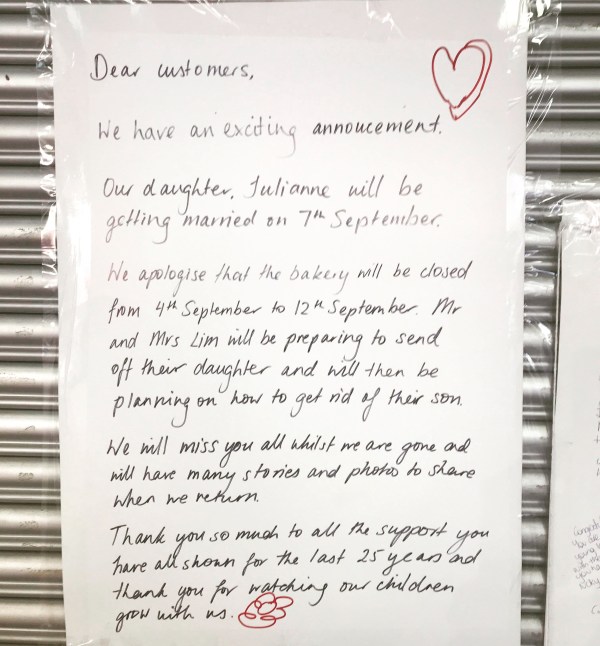 Dear customers,
We have an exciting annoucement.
Our daughter, Julianne will be
getting married on 7th September.
We apologise that the bakery will be closed
from 4th September to 12th September. Mr
and Mrs Lim will be preparing to send
off their daughter and will then be
planning on how to get rid of their son.
We will miss you all whilst we are gone and
will have many stories and photos to share
when we return.
Thank you so much to all the support you
have all shown for the last 25 years and
thank you for watching our children
grow with us.